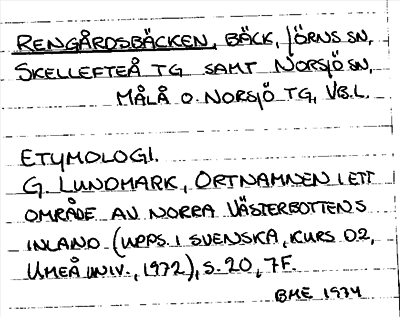 RENGÅRDSBÄCKEN, BÄCK, JÖRNS SN,
SKELLEFTEÅ TG SAMT NORSJÖ SN,
MÅLÅ O. NORSJÖ TG, VB.L.
ETYMOLOGI.
G. LUNDMARK, ORTNAMNEN I ETT
OMRÅDE AV NORRA VÄSTERBOTTENS
INLAND (UPPS. I SVENSKA, KURS 02,
UMEÅ UNIV., 1972), S. 20, 7F.
BME 1974